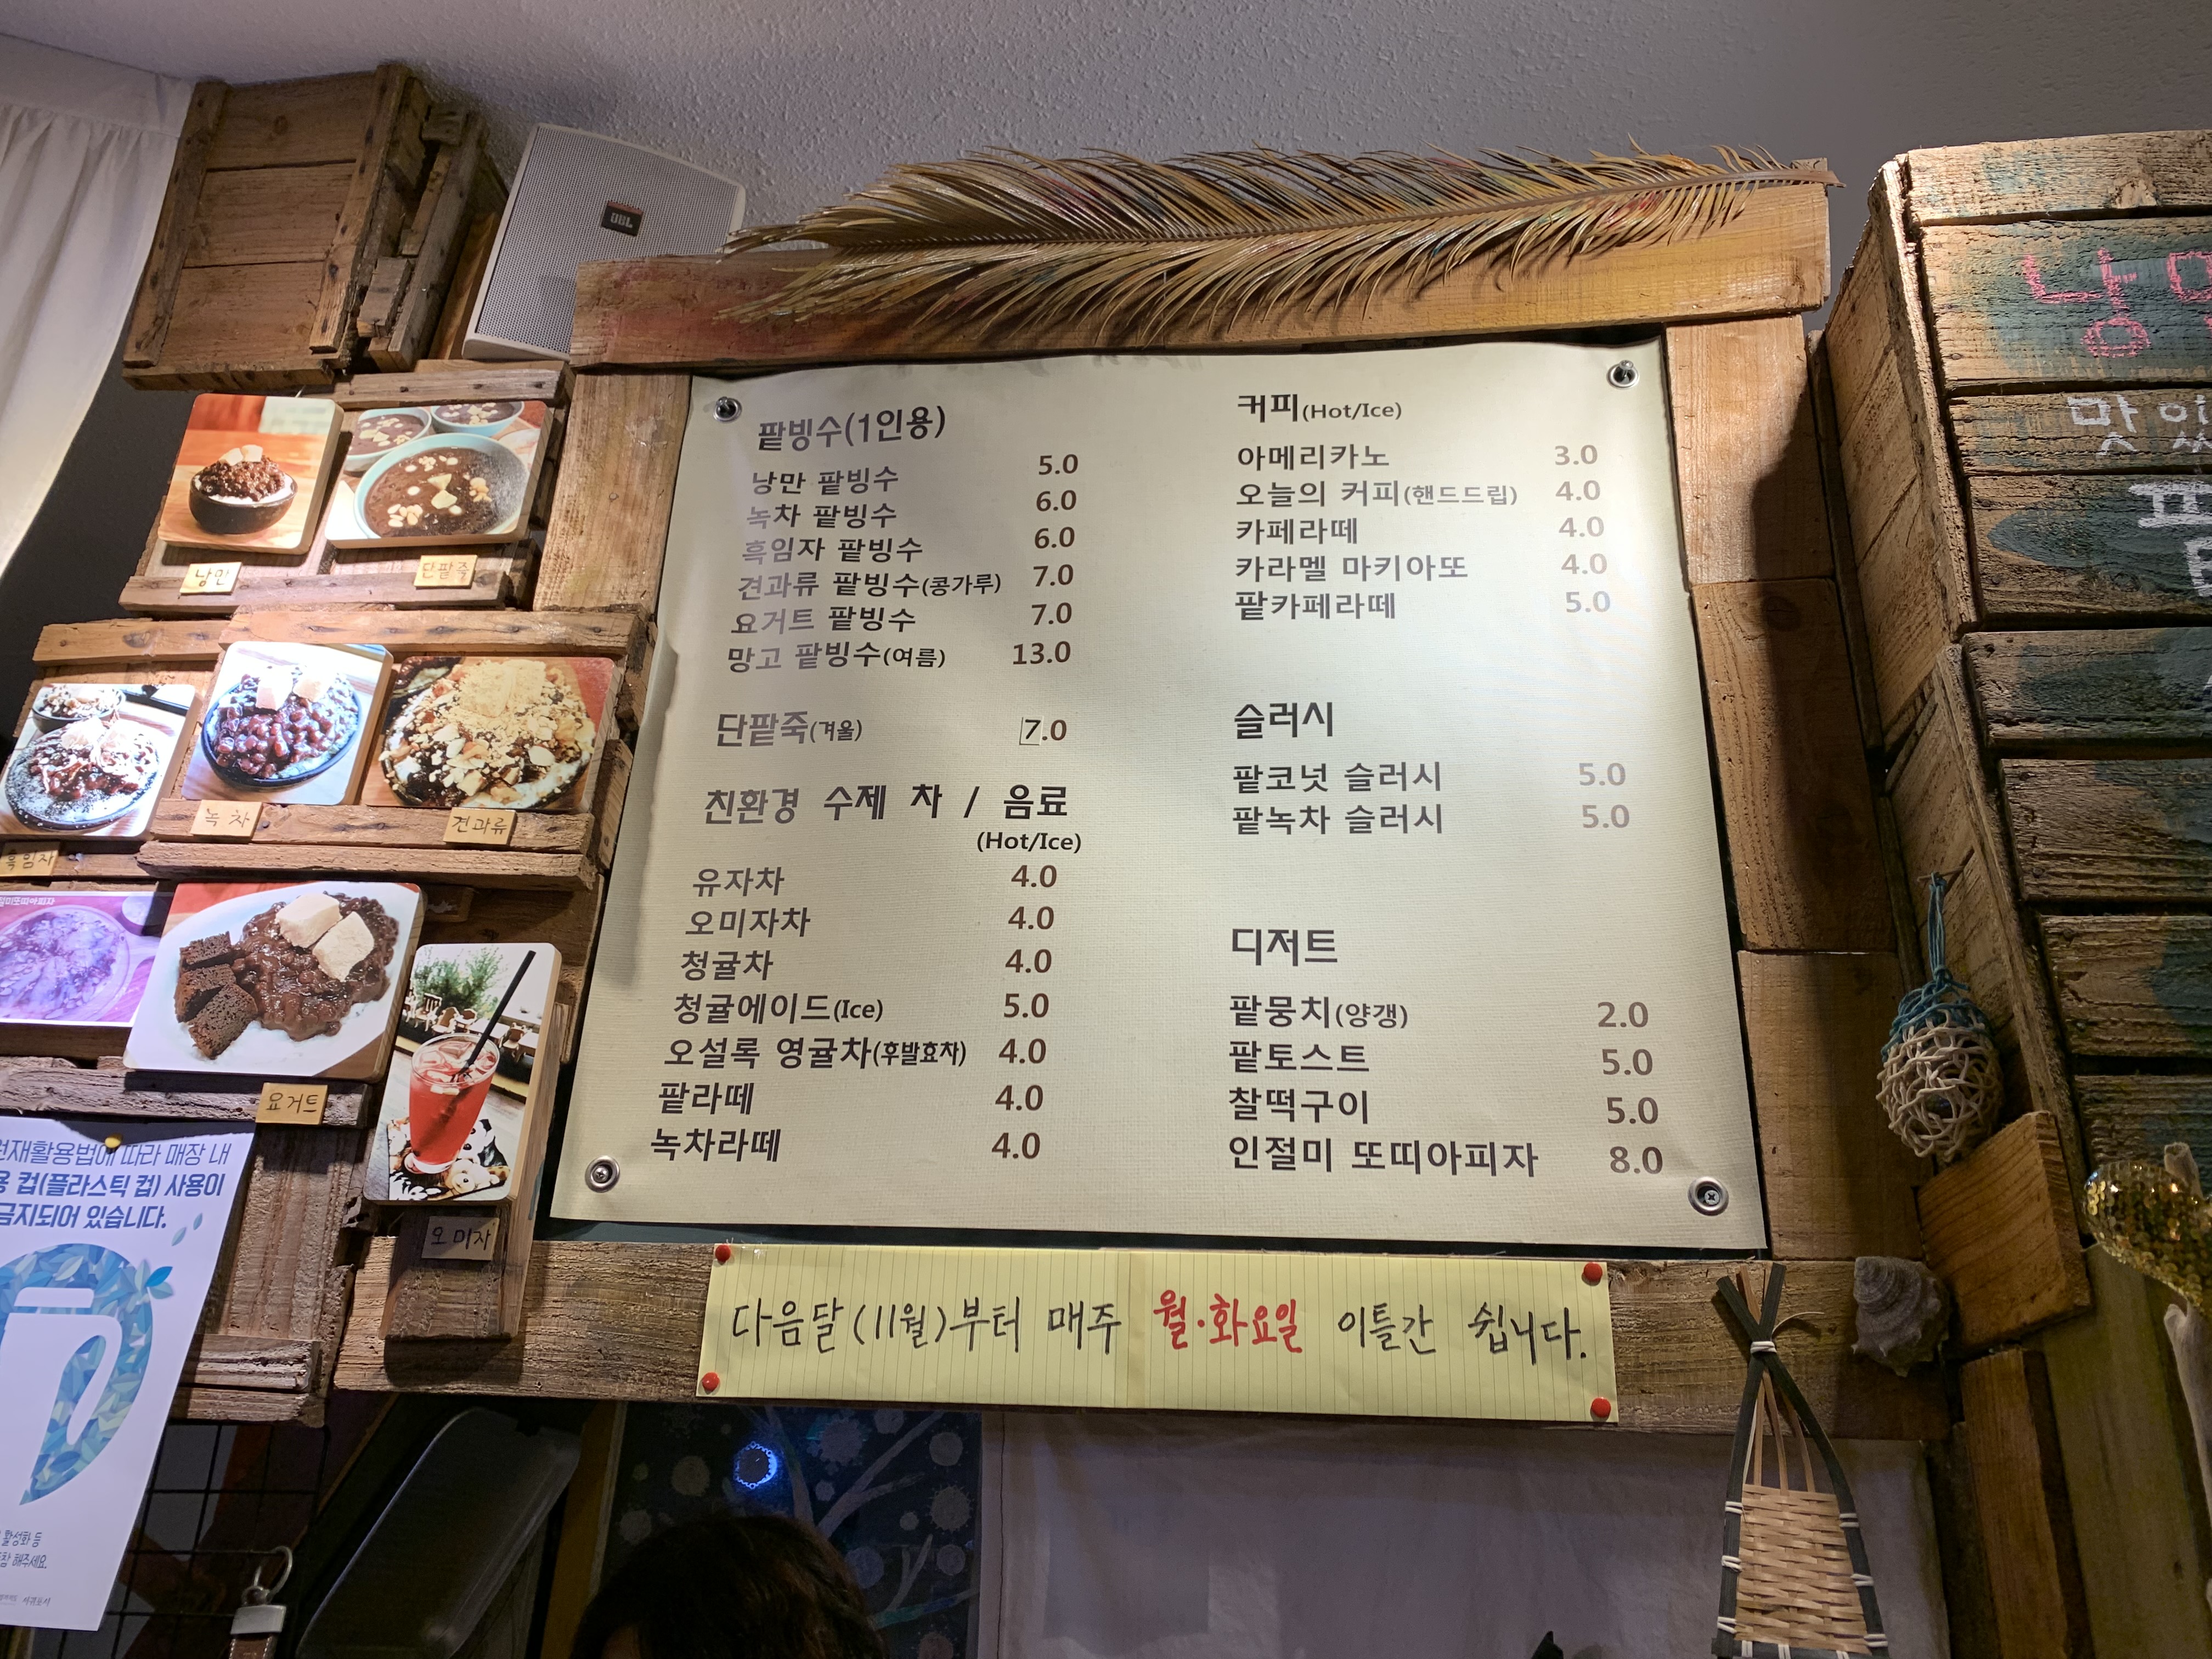 JBL
팥빙수(1인용)
낭만 팥빙수 5.0
녹차 팥빙수 6.0
흑임자 팥빙수 6.0
견과류 팥빙수(콩가루) 7.0
요거트 팥빙수 7.0
망고 팥빙수(여름) 13.0
단팥죽(겨울) 7.0
친환경 수제 차 / 음료
(Hot/Ice)
유자차 4.0
오미자차 4.0
청귤차 4.0
청귤에이드(Ice) 5.0
오설록 영귤차(후발효차) 4.0
팥라떼 4.0
녹차라떼 4.0
커피(Hot/Ice)
아메리카노 3.0
오늘의 커피(핸드드립) 4.0
카페라떼 4.0
카라멜 마키아또 4.0
팥카페라떼 5.0
슬러시
팥코넛 슬러시 5.0
팥녹차 슬러시 5.0
디저트
팥뭉치(양갱) 2.0
팥토스트 5.0
찰떡구이 5.0
인절미 또띠아피자 8.0
다음달(11월)부터 매주 월·화요일 이틀간 쉽니다.
낭만
단팥죽
흑임자
녹차
견과류
요거트
오미자
따라 매장 내
컵(플라스틱 컵) 사용이
금지되어 있습니다.
활성화 등
해주세요.